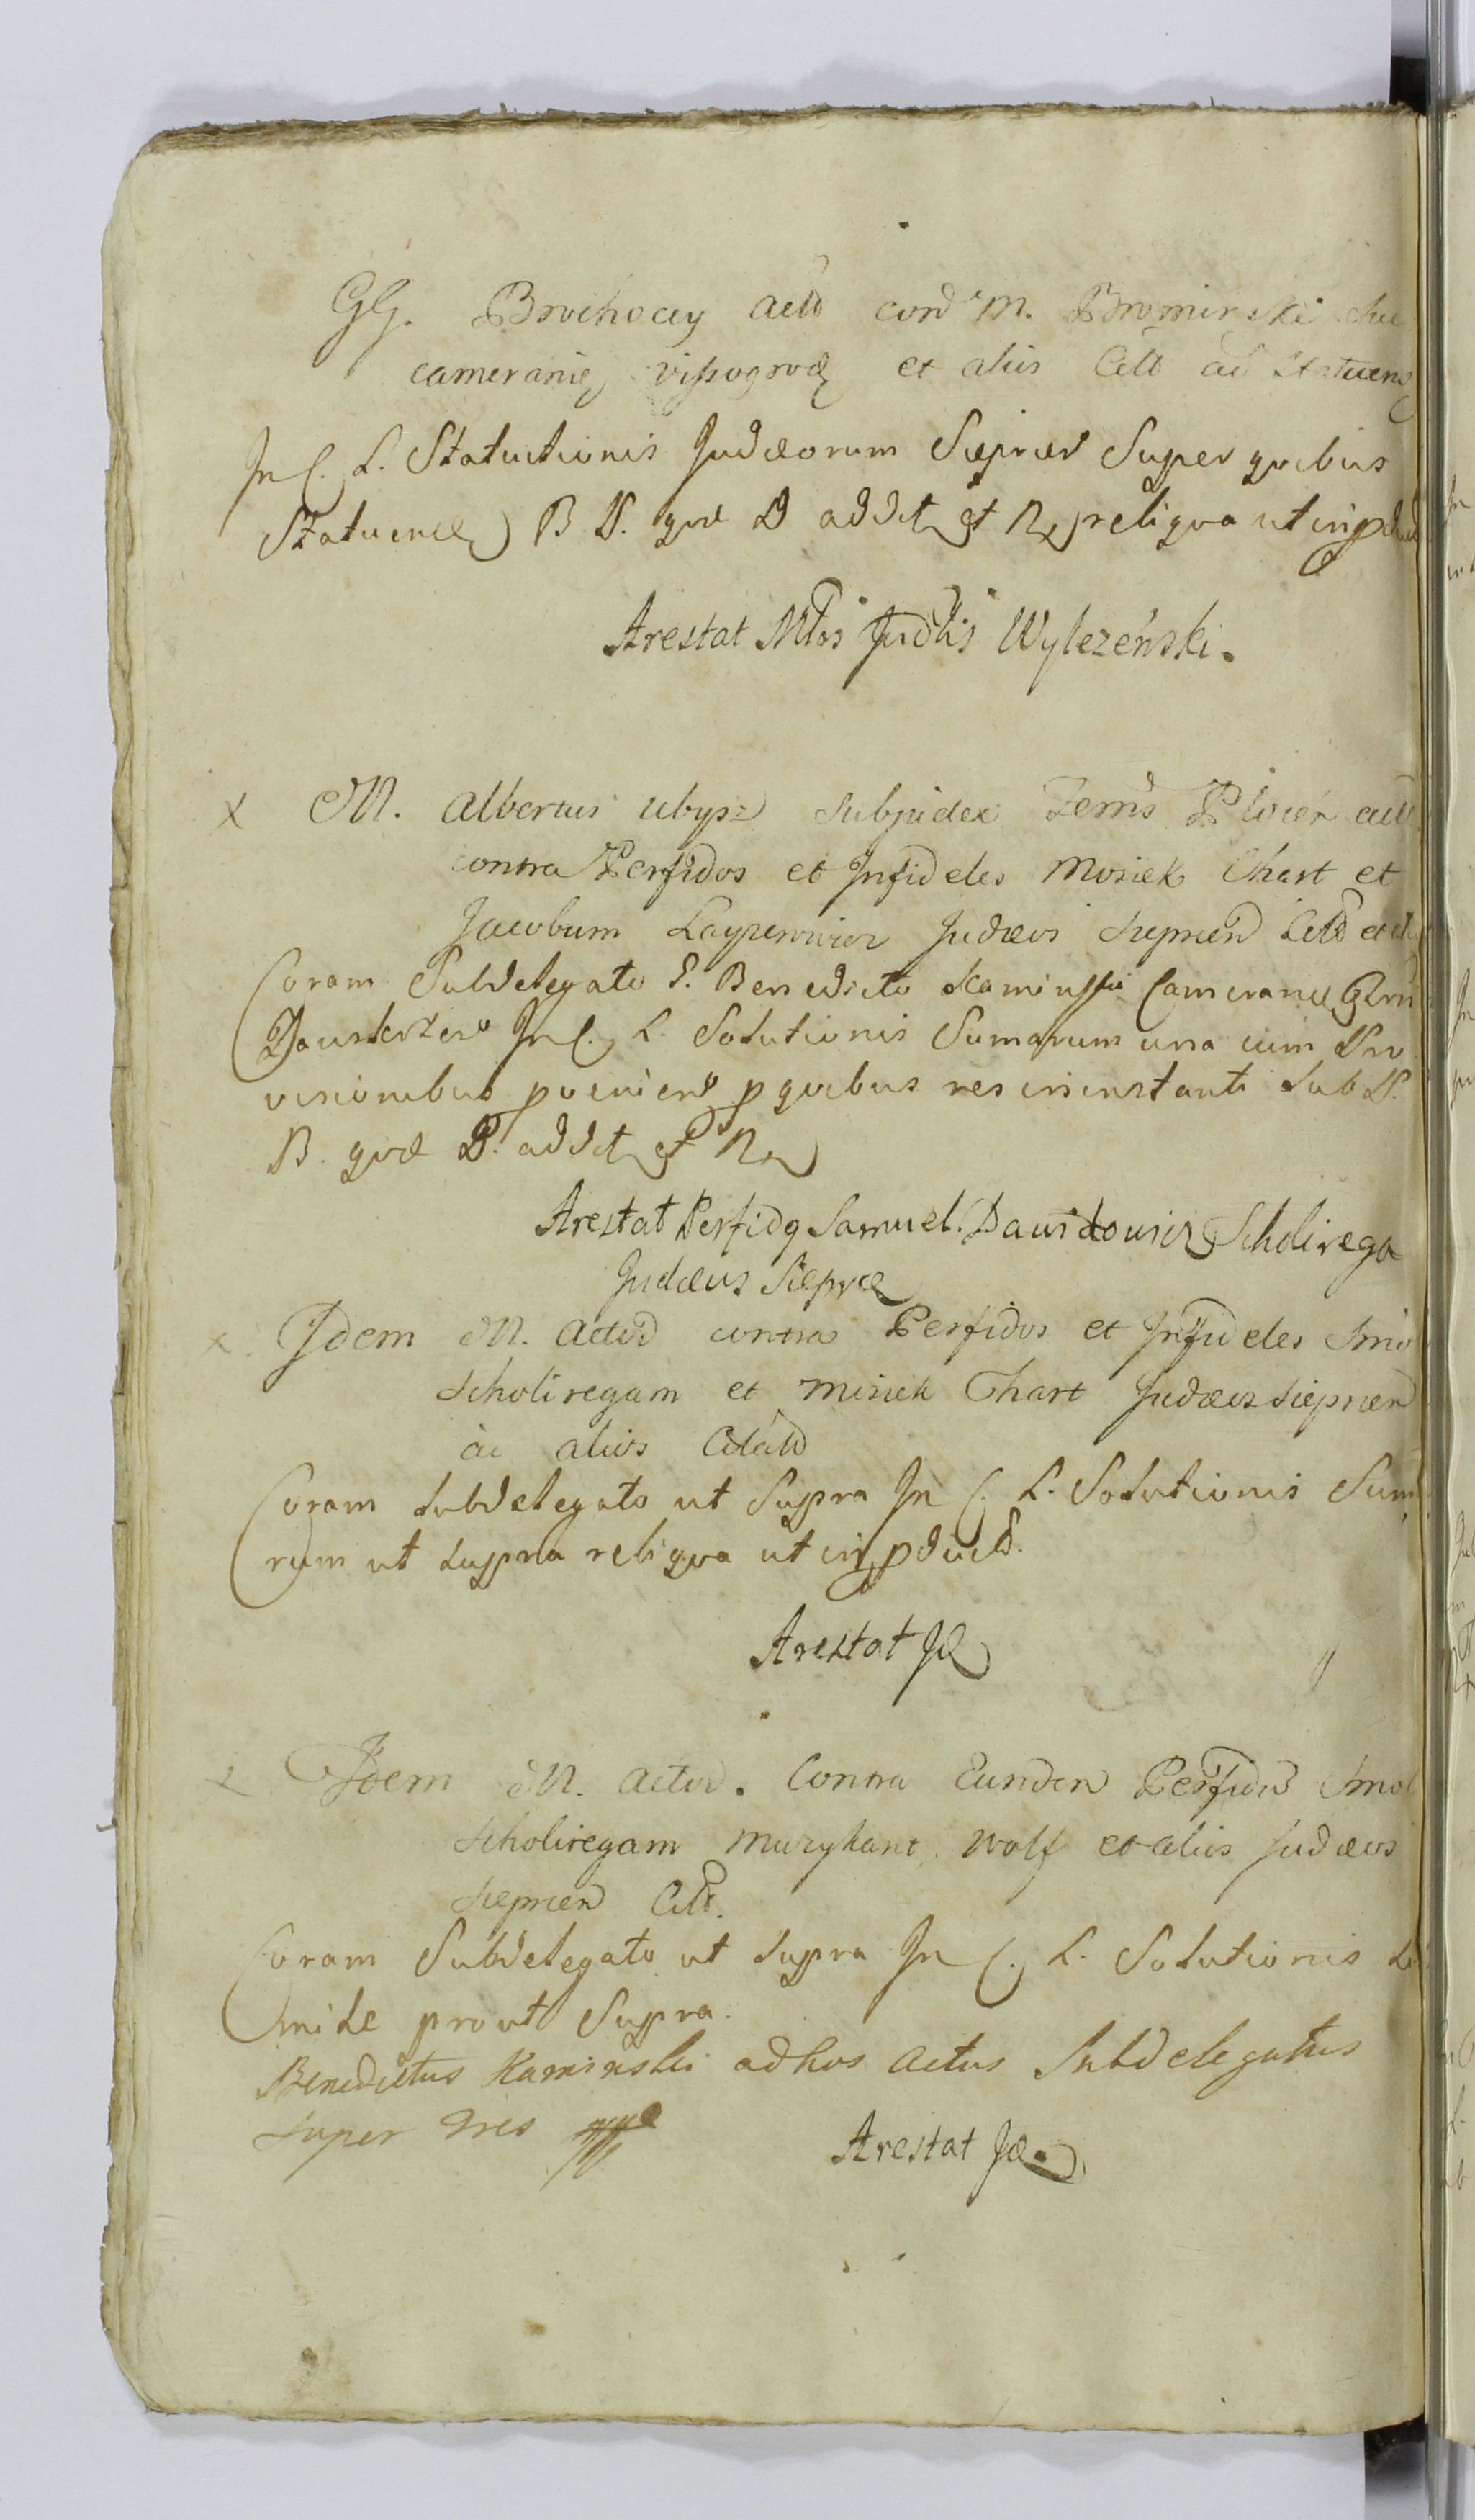 GG. Brochocey Actō con̄d M. Bromirski Suc
cameranie vissogrod et aliis Citō ad Statuend
In C. S. Statuitionis Judæorum Sieprceñ Super quibus
Statuendę B P. quæ D addet et Rx reliqua ut in pd
Arestat Mlos Judlis Wylezeński.
x M. Albertus Ubysz Subjudex Terrĩs Plocéñ act
contra Perfidos et Infideles Mosiek Chart et
Jacobum Judæos Sieprceñ Citō et
Coram Subdelegato S. Benedicto Kaminski Cameranie
In C. S. Solutionis Sumarum una cum Pro
visionibus proveñieñ p quibus res in instanti Sub P.
B. quæ P. addet et Rx
Arestat Perfidq Samuel Dawidowicz Scholirega
Judæus Sieprceñ
x Idem M. Actor contra Perfidos et Infideles Smo
Scholiregam et Misiek Chart Judæos Sieprceñ
ac alios Citatō
Coram Subdelegato ut Supra In C. S. Solutionis Sum
rum ut Supra reliqua ut in pduct.
Arestat Id
x Idem M. Actor. Contra Eundem Perfidū Smol
Scholiregam Muzykant Wolf et alios Judæos
Sieprceñ Citō.
Coram Subdelegato ut Supra In C. S. Solutionis
prout Supra.
Benedictus Kaminski ad hos Actus Subdelegatus
Super tres
Arestat Id.